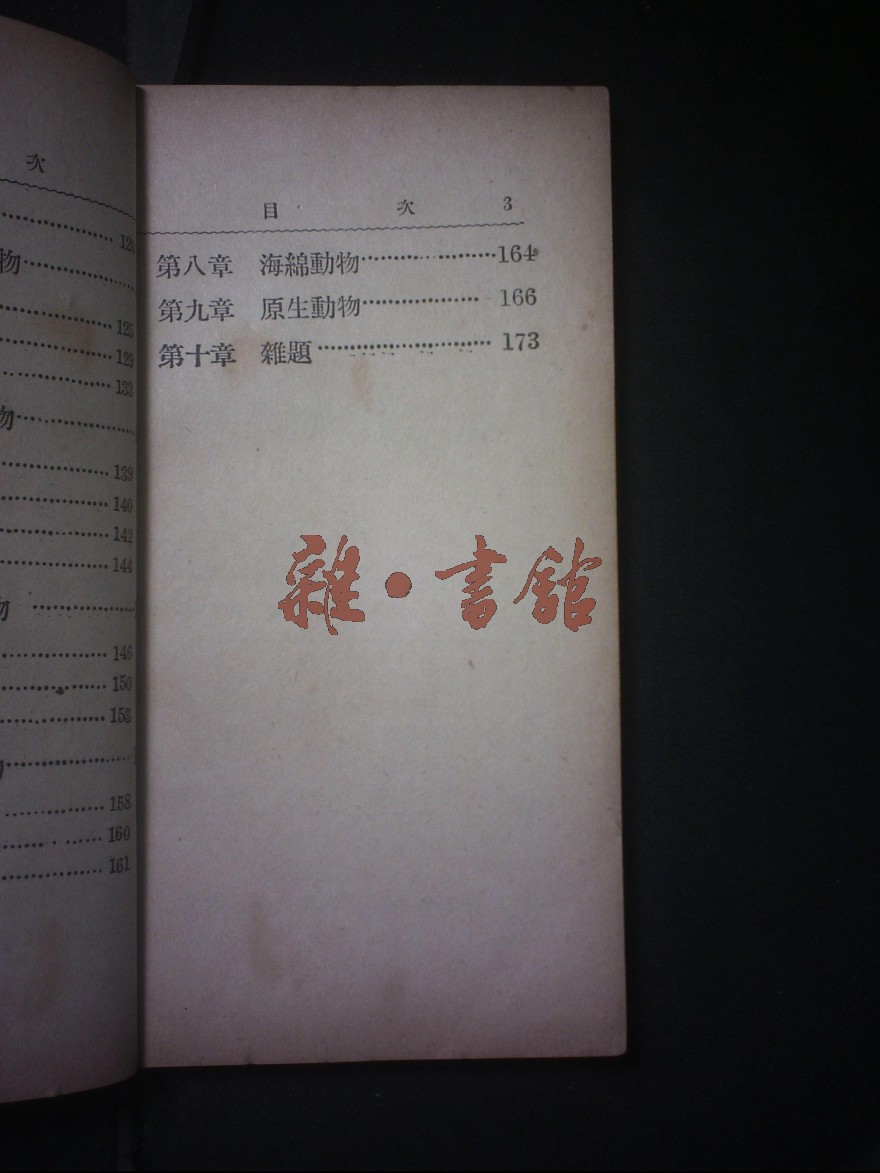 次
120
物
125
129
133
物
139
140
142
144
物
146
150
153
158
160
161
目 次 3
第八章 海綿動物 164
第九章 原生動物 166
第十章 雜題 173
雜·書館